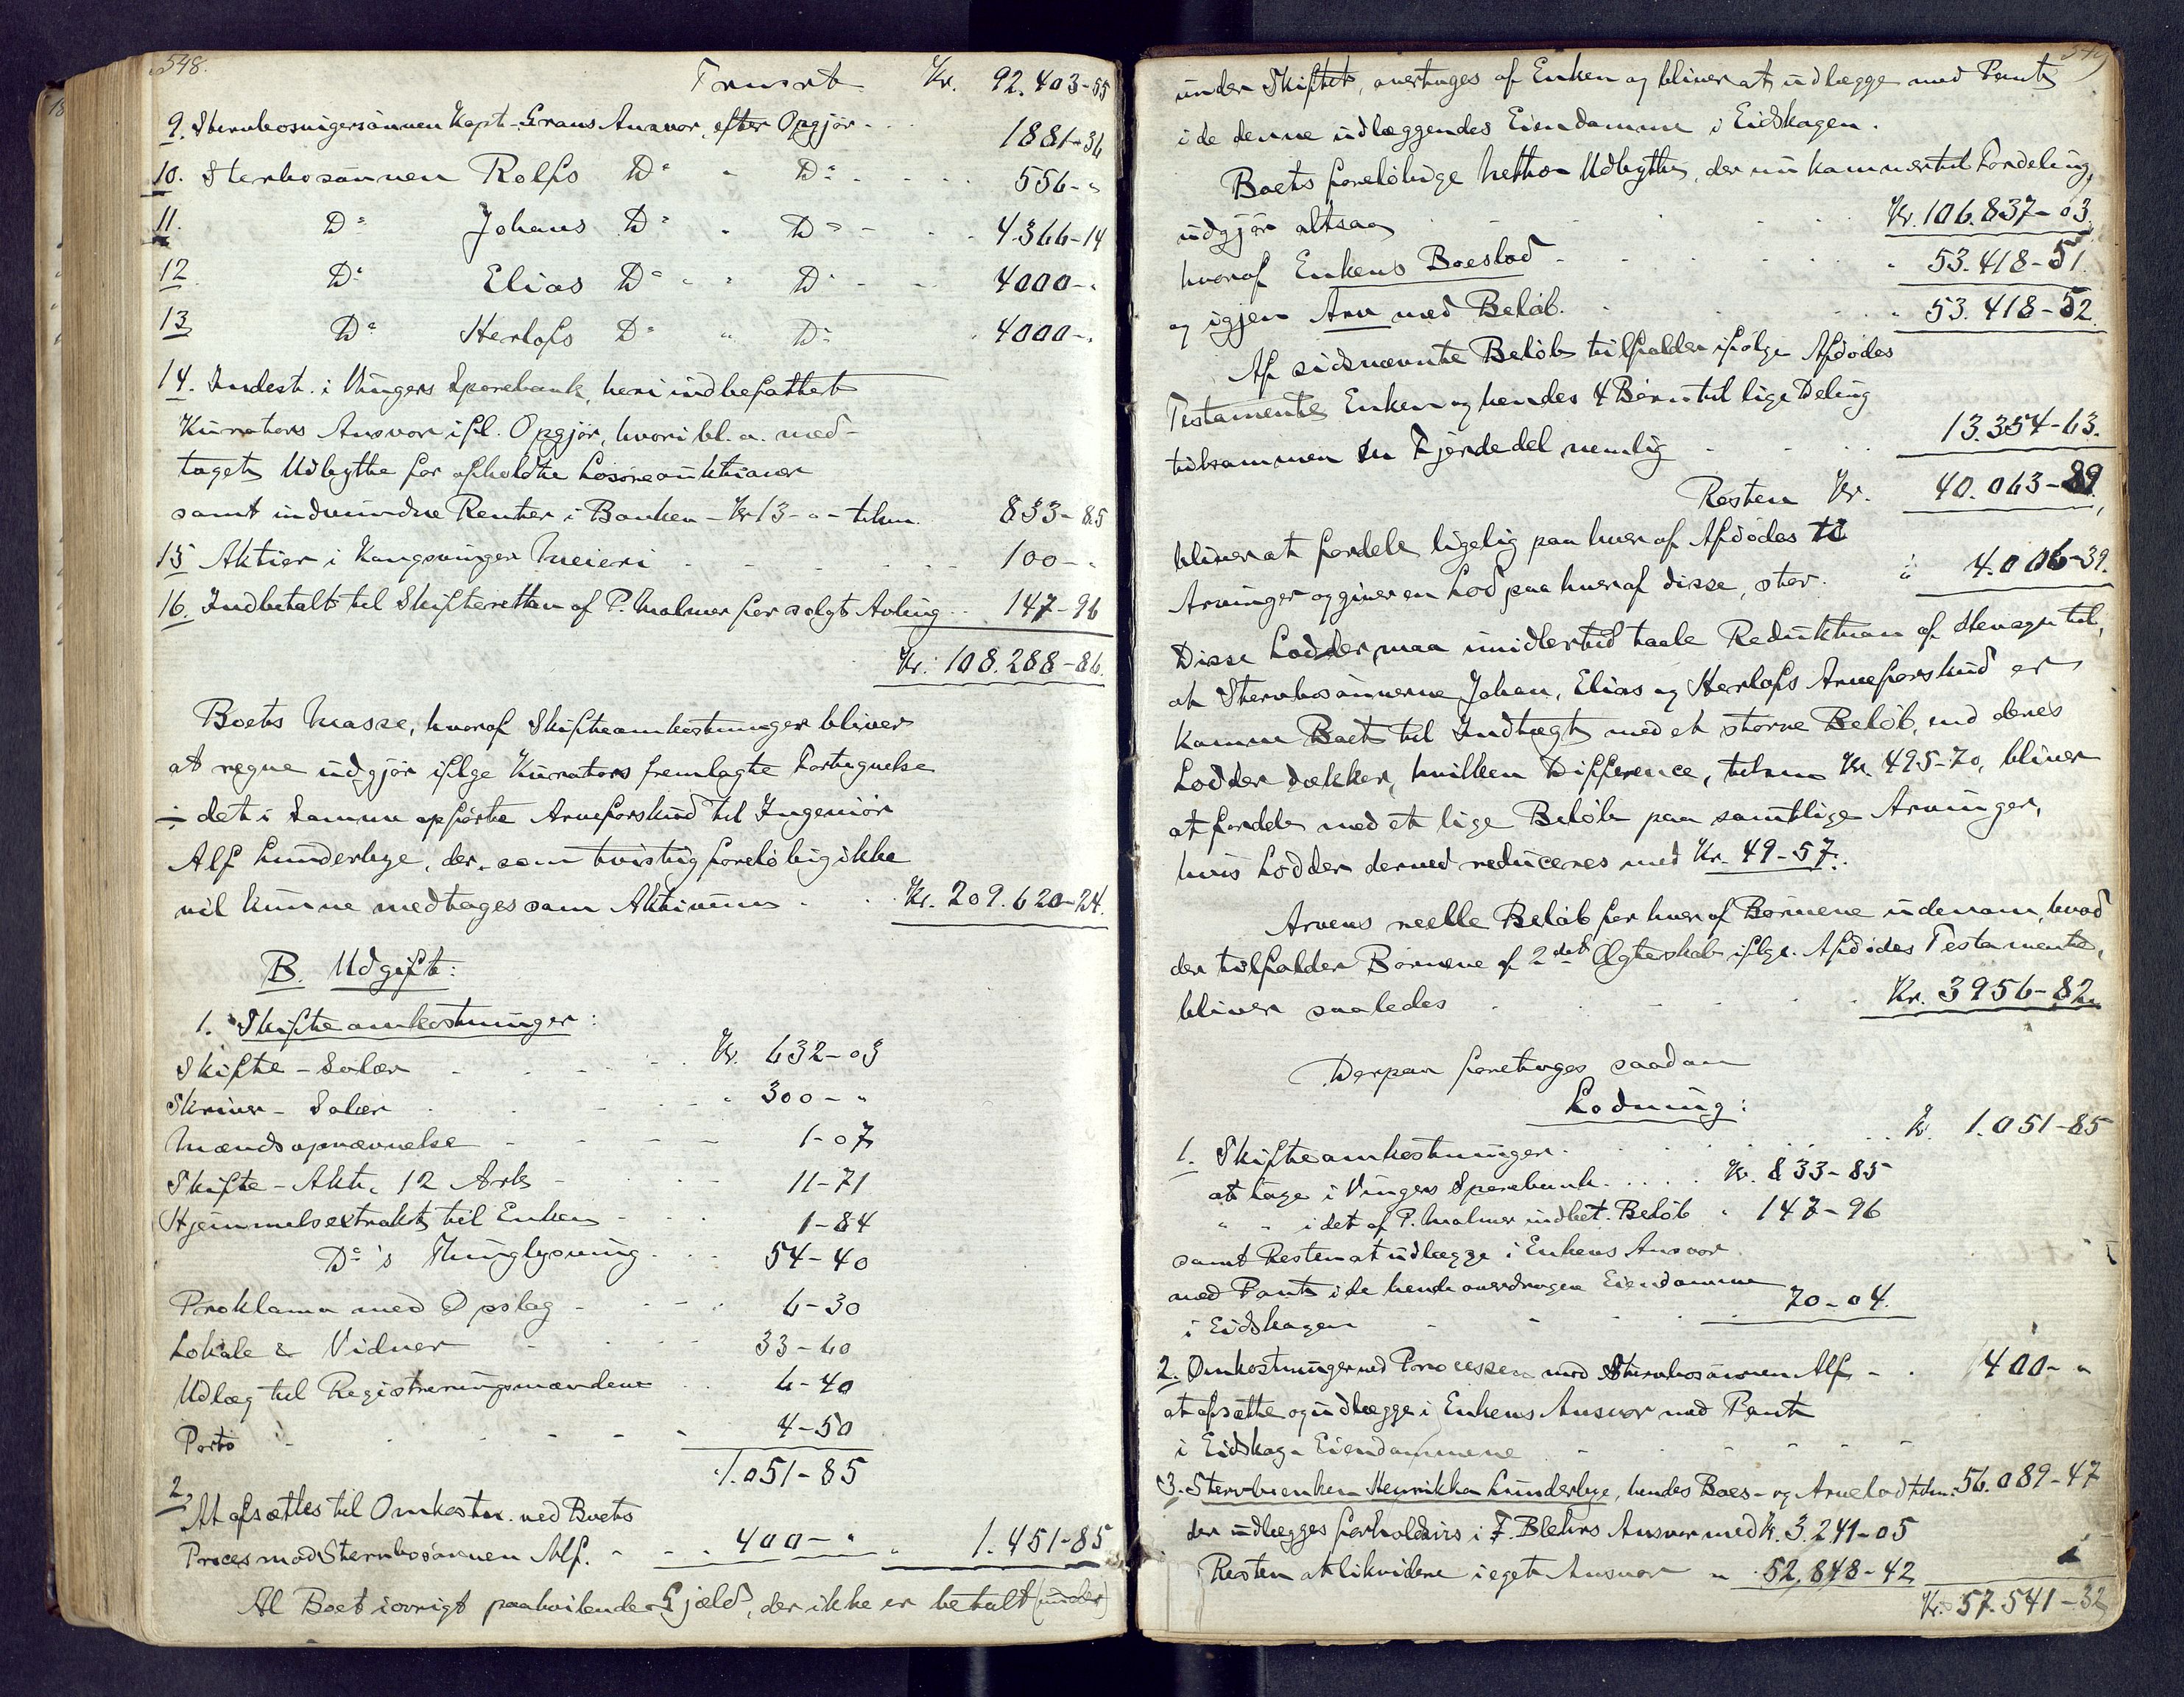 548.
Transport Kr. 92.403-55
9. Stervbosvigersønnen Kapt. Grans Ansvar, efter Opgjør - 1881-36
10. Stervbosønnen Rolfs Do " Do - 556-"
11. Do Johans Do " Do - 4.366-14
12 Do Elias Do " Do - 4000-"
13 Do Herlofs Do " Do 4000-"
14. Indest. i Vingers Sparebank, heri indbefattet
Kurators Ansvar ifl. Opgjør, hvori bl. a. med-
taget Udbytte for afholdte Løsøreauktioner
samt indvundne Renter i Banken - Kr 13-"- tilsm. 833-85
15 Aktier i Kongsvinger Meieri 100-"
16. Indbetalt til Skifteretten af P. Malmer for solgt Avling 147-96
Kr. 108.288-86.
Boets Masse, hvoraf Skifteomkostninger bliver
at regne udgjør ifølge Kurators fremlagte Fortegnelse
÷ det i Samme opførte Arveforskud til Ingeniør
Alf Lunderbye, der som tvistig foreløbig ikke
vil kunne medtages som Aktivum Kr. 209.620-24.
B. Udgift:
1. Skifteomkostninger:
Skifte-Salær Kr. 632-03
Skriver-Salær " 300-"
Mændsopnævnelse 1-07
Skifte-Akt, 12 Ark 11-71
Hjemmelsextrakt til Enken 1-84
Do's Thinglysning 54-40
Proklama med Opslag 6-30
Lokale & Vidner 33-60
Udlæg til Registreringsmændene 6-40
Porto 4-50
1.051-85
2. At afsættes til Omkostn. ved Boets
Proces mod Stervbosønnen Alf. 400-" " 1.451-85
Al Boet iøvrigt paahvilende Gjæld, der ikke er betalt (under)
549
under Skiftet, overtages af Enken og bliver at udlægge med Pant
i de denne udlæggendes Eiendomme i Eidskogen.
Boets foreløbige Netto Udbytte, der nu kommer til Fordeling,
udgjør altsaa Kr. 106.837-03
hvoraf Enkens Boeslod " 53.418-51.
og igjen Arv med Beløb. " 53.418-52.
Af sidsnævnte Beløb tilfalder ifølge Afdødes
Testamente Enken og hendes 4 Børn til lige Deling
tilsammen en Fjerdedel nemlig 13.354-63.
Resten Kr. 40.063-89,
bliver at fordele ligelig paa hver af Afdødes ti
Arvinger og giver en Lod paa hver af disse, stor " 4.006-39.
Disse Lodder maa imidlertid taale Reduktion af Hensyn til,
at Stervbosønnerne Johan, Elias og Herlofs Arveforskud er
komne Boet til Indtægt med et større Beløb, end deres
Lodder dækker, hvilken Difference, tilsm Kr. 495-70, bliver
at fordele med et lige Beløb paa samtlige Arvinger,
hvis Lodder derved reduceres med Kr. 49-57.
Arvens reelle Beløb for hver af Børnene udenom, hvad
der tilfalder Børnene af 2det Ægteskab ifølge Afdødes Testamente,
bliver saaledes Kr. 3956-82.
Derpaa foretoges saadan
Lodning:
1. Skifteomkostninger Kr. 1.051-85
at tage i Vingers Sparebank Kr. 833-85
" " i det af P. Malmer indbet. Beløb " 147-96
samt Resten at udlægge i Enkens Ansvar
med Pant i de hende overdragne Eiendomme
i Eidskogen 70-04.
2. Omkostninger ved Processen mod Stervbosønnen Alf 400-"
at afsætte og udlægge i Enkens Ansvar med Pant
i Eidskog-Eiendommene
3. Stervboenken Henrikka Lunderbye, hendes Boes- og Arvelod tilsm. 56.089-47
der udlægges forholdsvis i F. Blehrs Ansvar med Kr. 3.241-05
Resten at likvidere i eget Ansvar " 52.848-42
Kr. 57.541-32